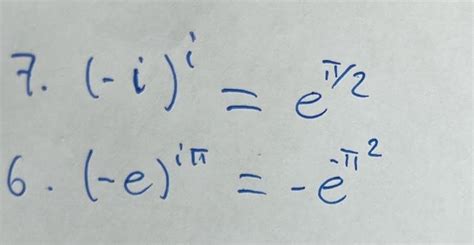 7. (-i)^i = e^{π/2}
6. (-e)^{iπ} = -e^{-π^2}